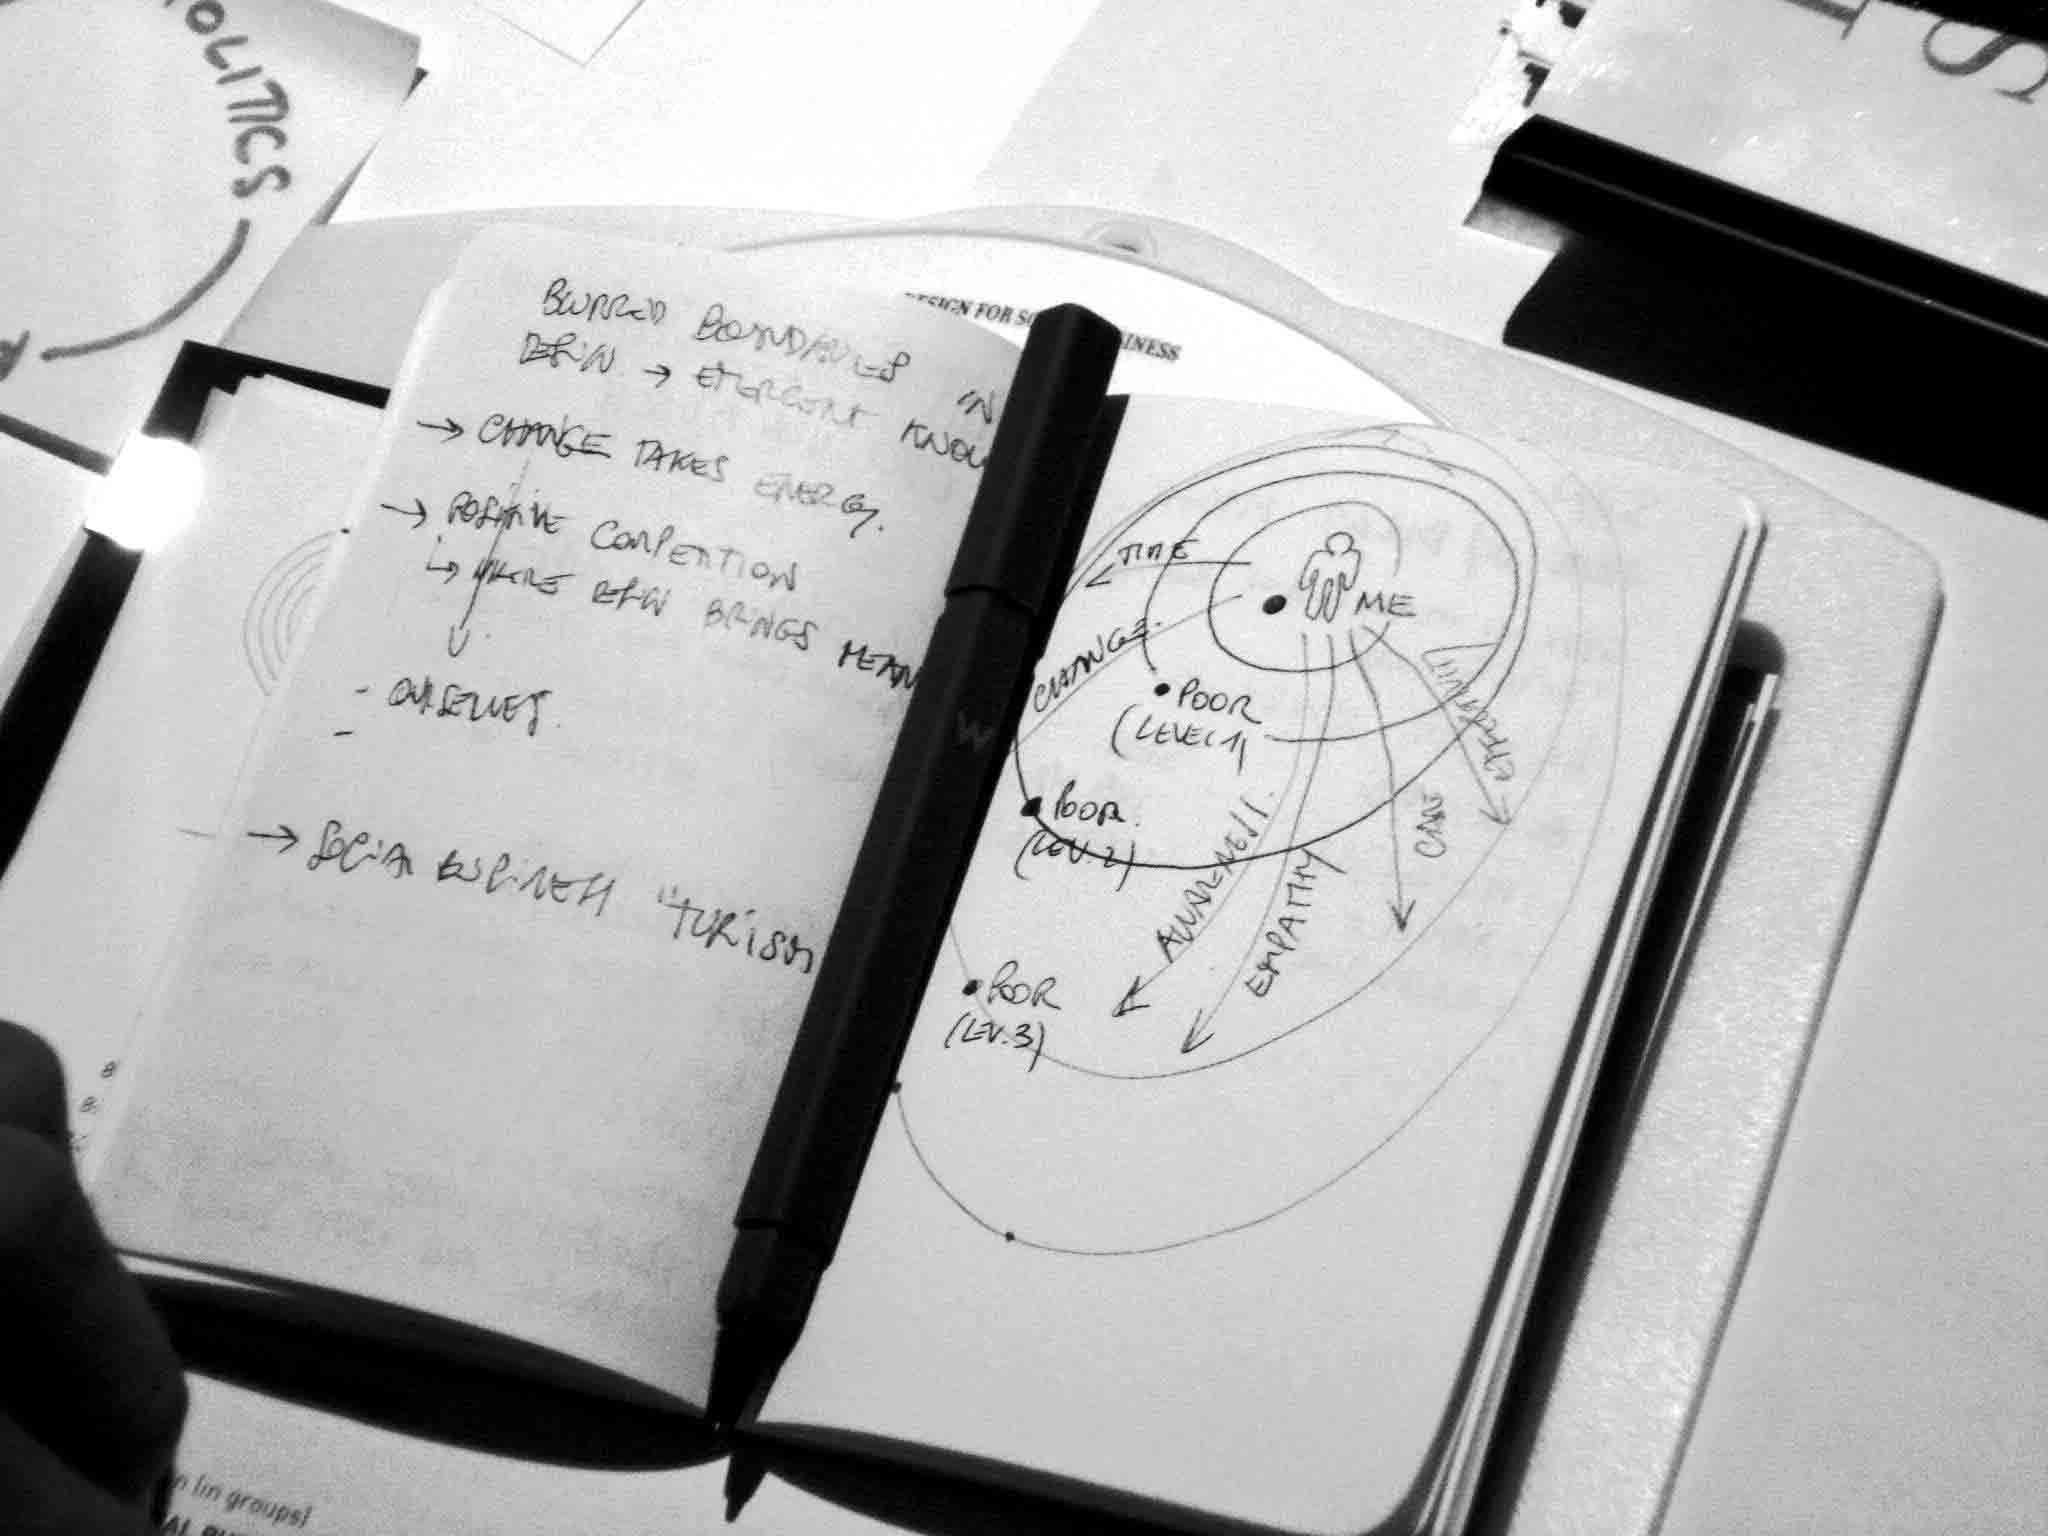 OLITICS
S
BLURRED BOUNDARIES IN
DESIGN → EMERGENT KNOW
→ CHANGE TAKES ENERGY.
→ POSITIVE COMPETITION
↳ WHERE DESIGN BRINGS MEAN
- OURSELVES.
-
→ SOCIAL BUSINESS "TURISM
ESIGN FOR SO INESS
ME
TIME
CHANGE.
POOR
(LEVEL 1)
POOR.
(LEV. 2)
POOR
(LEV. 3)
AWARENESS.
EMPATHY
CARE
n (in groups)